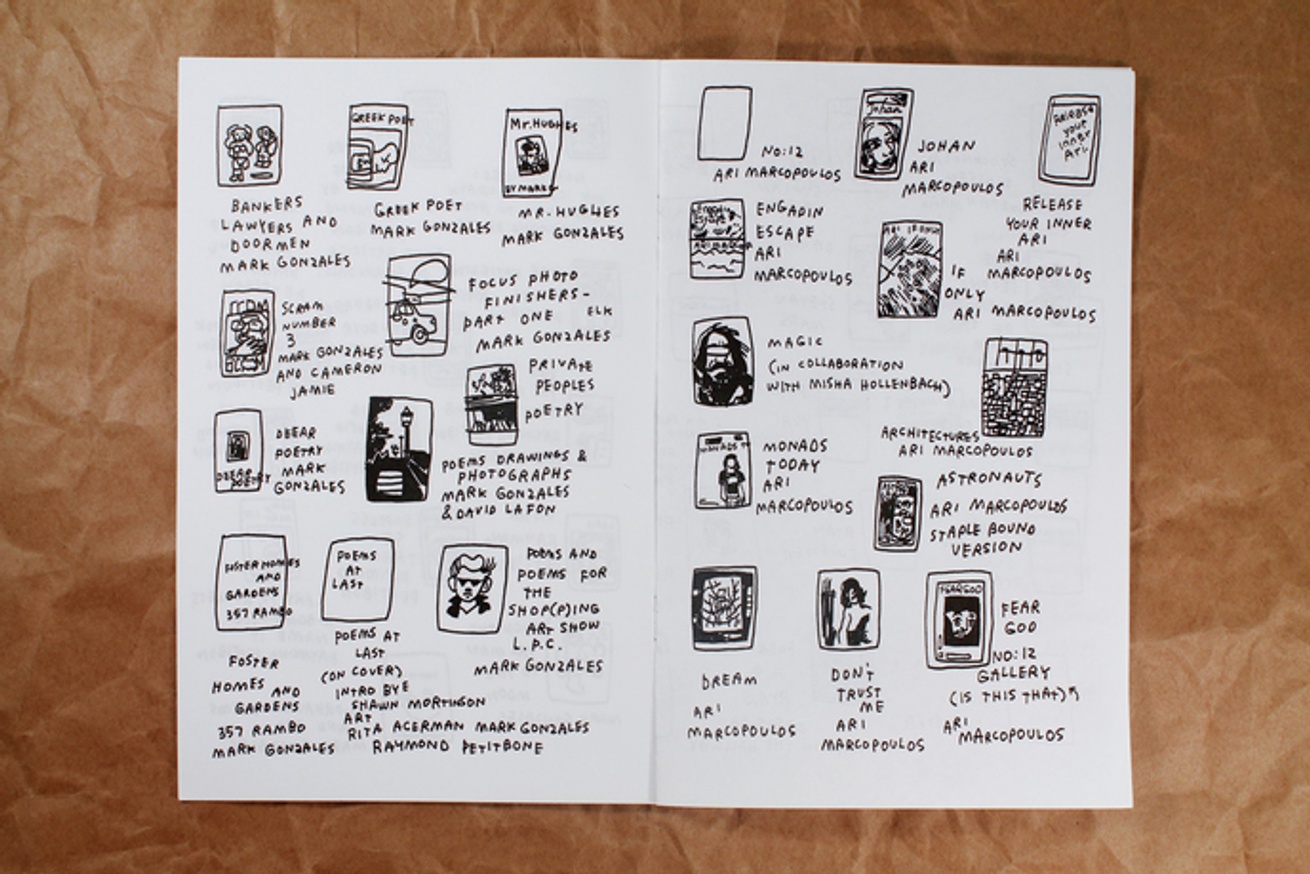 GREEK POET
Mr. HUGHES
BY MARK
BANKERS
LAWYERS AND
DOORMEN
MARK GONZALES
GREEK POET
MARK GONZALES
MR. HUGHES
MARK GONZALES
SCRAM
NUMBER
3
MARK GONZALES
AND CAMERON
JAMIE
FOCUS PHOTO
FINISHERS-
PART ONE ELK
MARK GONZALES
PRIVATE
PEOPLES
POETRY
DEEAR
POETRY
DEEAR
POETRY
MARK
GONZALES
POEMS DRAWINGS &
PHOTOGRAPHS
MARK GONZALES
& DAVID LAFON
FOSTER HOMES
AND
GARDENS
357 RAMBO
FOSTER
HOMES AND
GARDENS
357 RAMBO
MARK GONZALES
POEMS
AT
LAST
POEMS AT
LAST
(ON COVER)
INTRO BYE
SHAWN MORTINSON
ART
RITA ACERMAN MARK GONZALES
RAYMOND PETITBONE
POEMS AND
POEMS FOR
THE
SHOP(P)ING
ART SHOW
L.P.C.
MARK GONZALES
NO:12
ARI MARCOPOULOS
Johan
JOHAN
ARI
MARCOPOULOS
RELEASE
your
inner
Ari
RELEASE
YOUR INNER
ARI
ARI
MARCOPOULOS
Engadin
Escape
ENGADIN
ESCAPE
ARI
MARCOPOULOS
IF
ONLY
ARI MARCOPOULOS
MAGIC
(IN COLLABORATION
WITH MISHA HOLLENBACH)
ARCHITECTURES
ARI MARCOPOULOS
MONADS
MONADS
TODAY
ARI
MARCOPOULOS
ASTRONAUTS
ARI MARCOPOULOS
STAPLE BOUND
VERSION
DREAM
ARI
MARCOPOULOS
DON'T
TRUST
ME
ARI
MARCOPOULOS
FEARGOD
FEAR
GOD
NO:12
GALLERY
(IS THIS THAT)
ARI
MARCOPOULOS